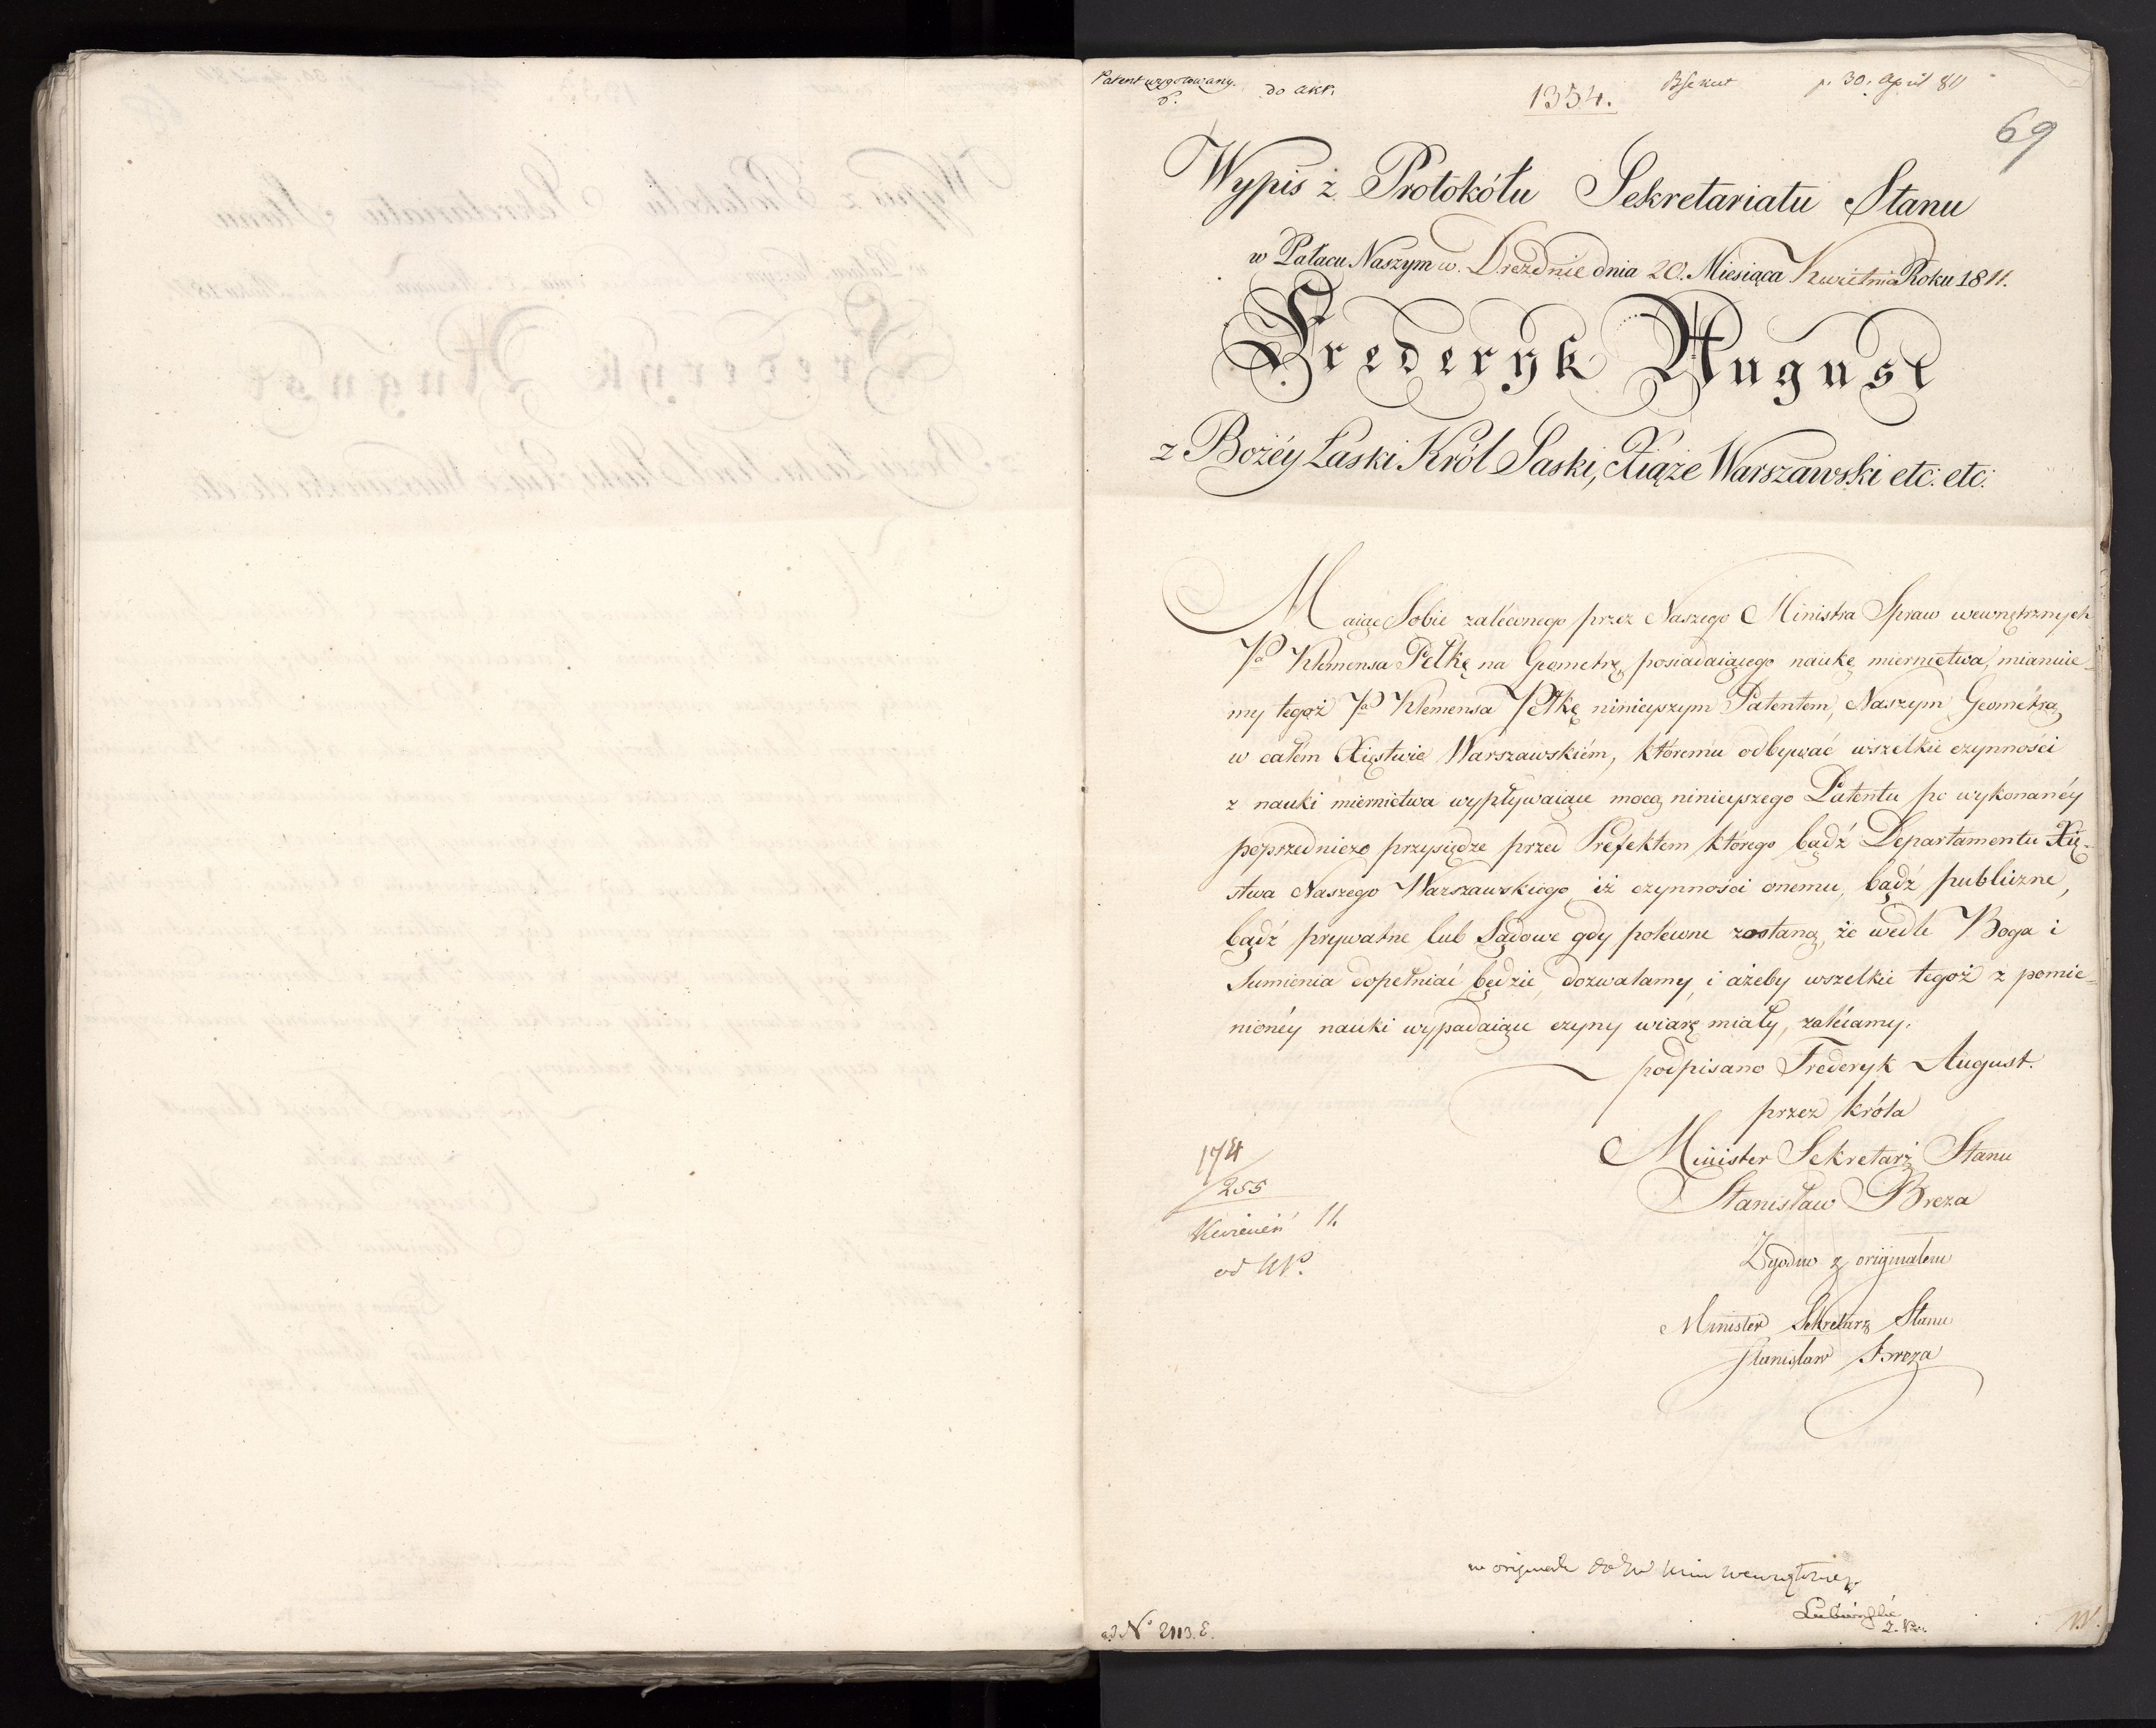 Patent wygotowany. do akt. 1354. p. 30. April 811
69
Wypis z Protokółu Sekretariatu Stanu
w Pałacu Naszym w. Dreźdnie dnia 20. Miesiąca Kwietnia Roku 1811.
Frederyk August
z Bożéy Łaski Król Saski, Xiąże Warszawski etc: etc:
Maiąc Sobie zaleconego przez Naszego Ministra Spraw wewnętrznych
Pa Klemensa Pełkę na Geometrę, posiadaiącego naukę miernictwa, mianuie-
my tegoż Pa Klemensa Pełkę ninieyszym Patentem, Naszym Geométrą
w całém Xięstwie Warszawskiém, któremu odbywać wszelkie czynności
z nauki miernictwa wypływaiące mocą ninieyszego Patentu po wykonanéy
poprzedniczo przysiędze przed Prefektem którego bądź Departamentu Xię-
stwa Naszego Warszawskiego, iż czynności onemu, bądź publiczne,
bądź prywatne lub Sądowe gdy polecone zostaną, że wedle Boga i
Sumienia dopełniać będzie, dozwalamy, i ażeby wszelkie tegoż z pomie-
nionéy nauki wypadaiące czyny wiarę miały, zalécamy.
podpisano Frederyk August.
przez króla
Minister Sekretarz Stanu
Stanisław Breza
174
255
Kwiecień 11.
od
Zgodno z originałem
Minister Sekretarz Stanu
Stanisław Breza
w originale do
ad No 2113. E.